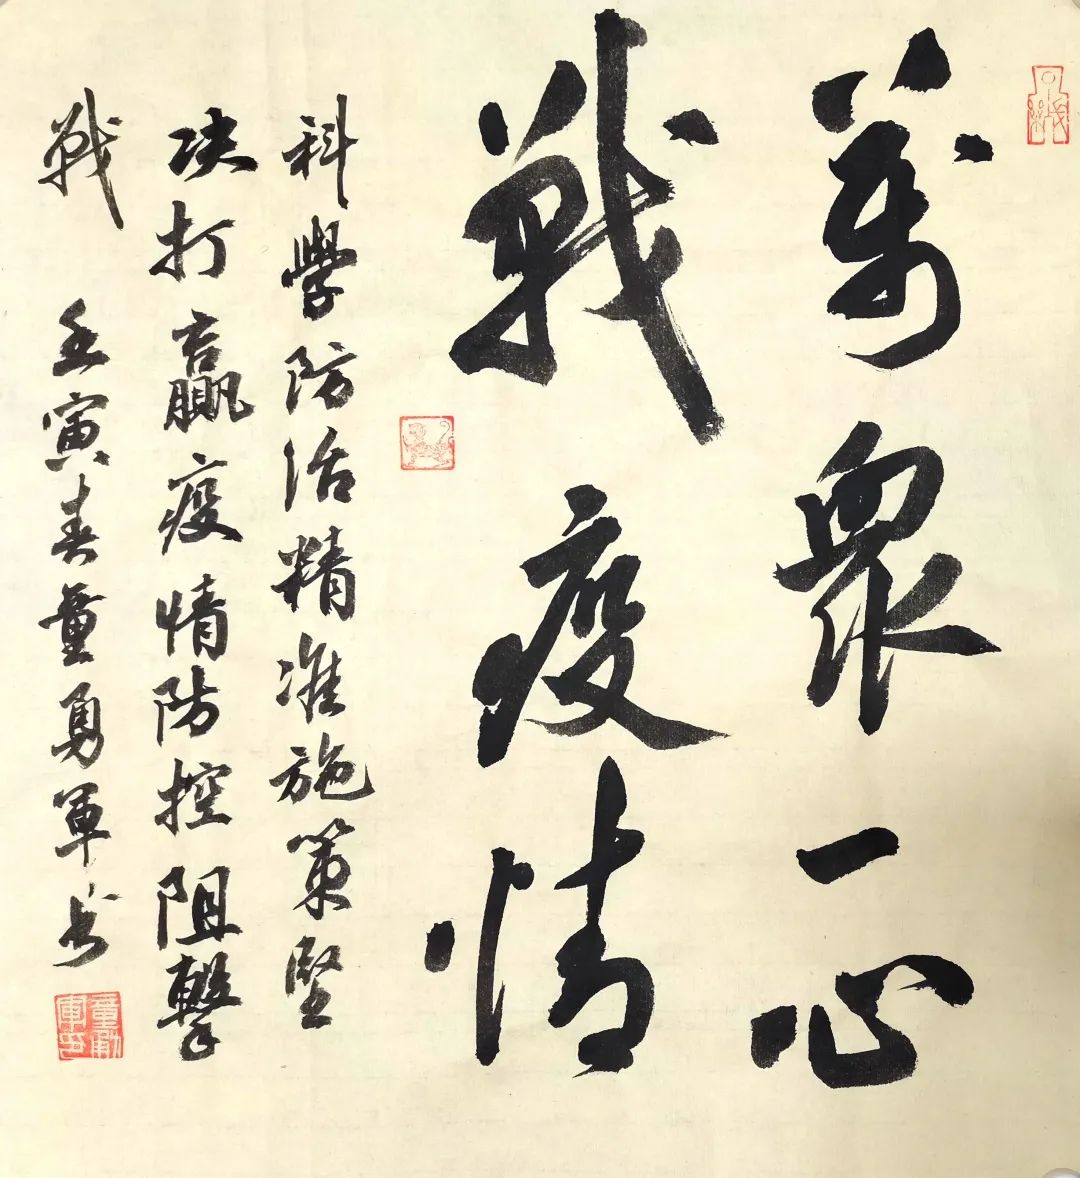 萬衆一心
戰疫情
科學防治精准施策堅
决打贏疫情防控阻擊
戰 壬寅春童勇軍书
童勇軍印